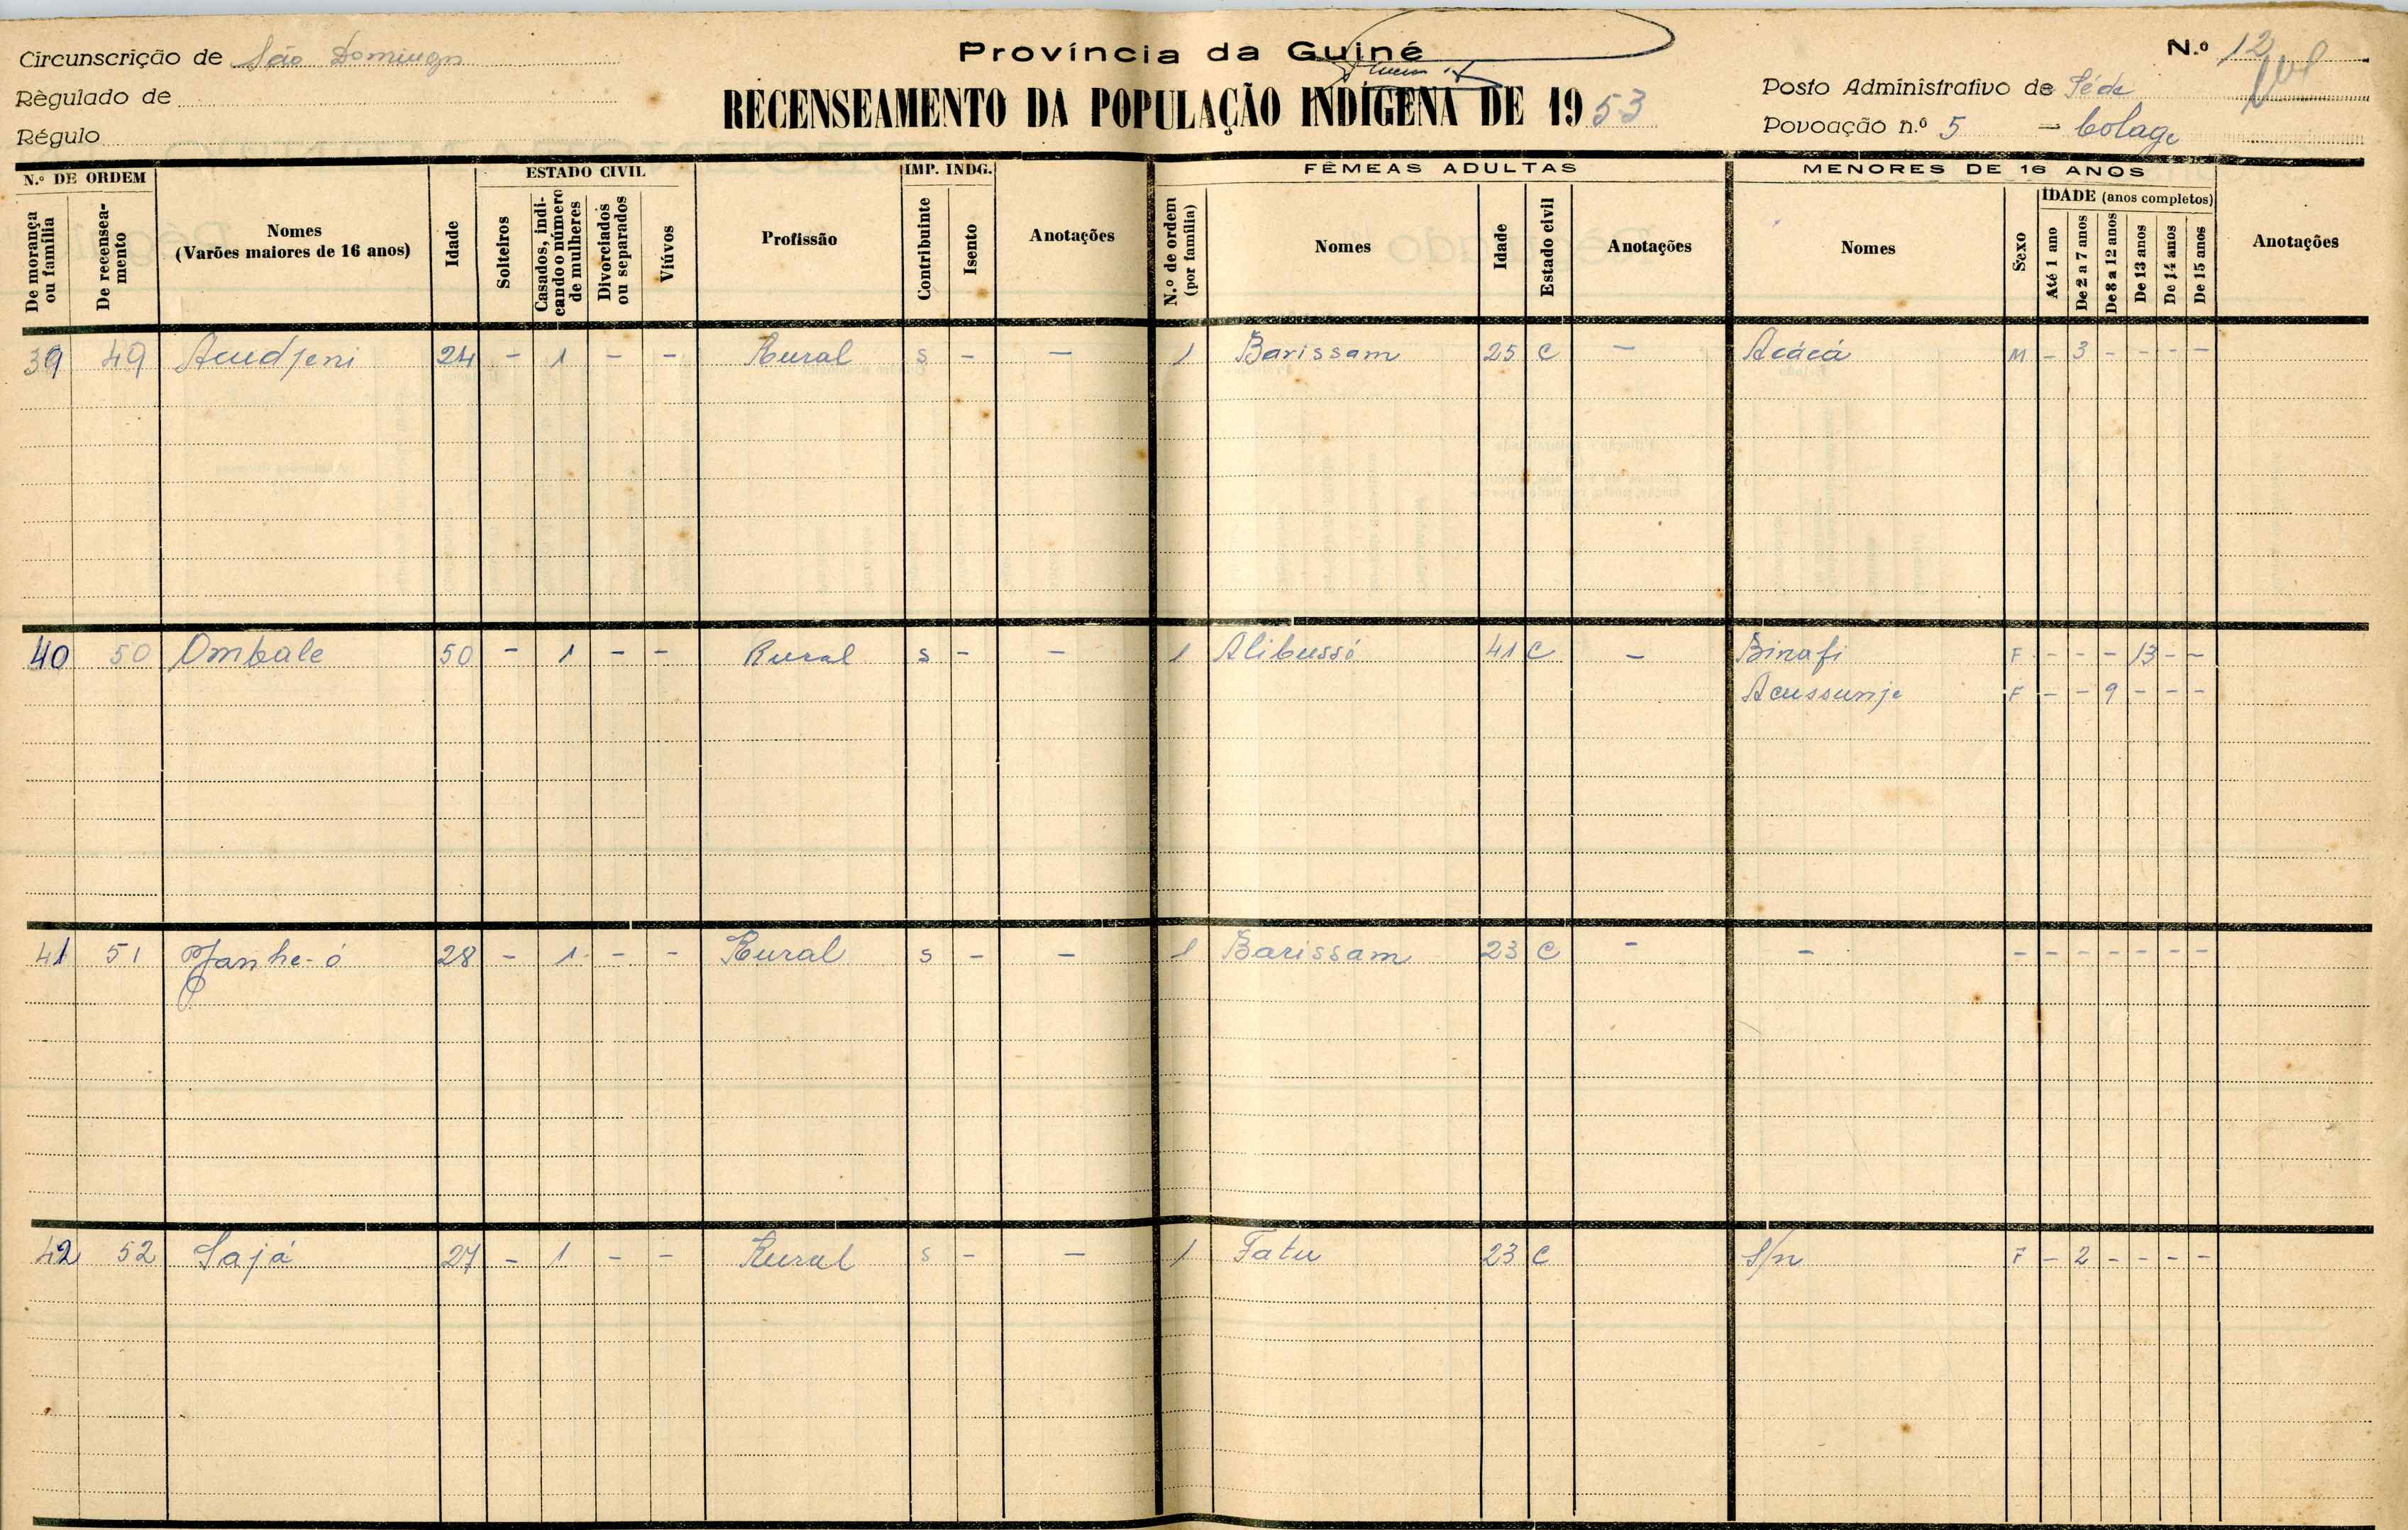 Circunscrição de São Domingos
Província da Guiné
N.º 12
Règulado de
RECENSEAMENTO DA POPULAÇÃO INDÍGENA DE 1953
Posto Administrativo de Séde
Régulo
Povoação n.º 5 - Colage
N.º DE ORDEM
De morança ou família
De recenseamento
Nomes
(Varões maiores de 16 anos)
Idade
ESTADO CIVIL
Solteiros
Casados, indicando o número de mulheres
Divorciados ou separados
Viúvos
Profissão
IMP. INDG.
Contribuinte
Isento
Anotações
FÊMEAS ADULTAS
N.º de ordem (por família)
Nomes
Idade
Estado civil
Anotações
MENORES DE 16 ANOS
Nomes
Sexo
IDADE (anos completos)
Até 1 ano
De 2 a 7 anos
De 8 a 12 anos
De 13 anos
De 14 anos
De 15 anos
Anotações
39 49 Acudjeni 24 - 1 - - Rural S - - 1 Barissam 25 C - Acácá M - 3 - - - -
40 50 Ombale 50 - 1 - - Rural S - - 1 Alibussó 41 C - Binafi F - - - 13 - -
Acussunje F - - 9 - - -
41 51 Janhe-ó 28 - 1 - - Rural S - - 1 Barissam 23 C - - - - - - - - -
42 52 Sajá 27 - 1 - - Rural S - - 1 Fatu 23 C S/n F - 2 - - - -